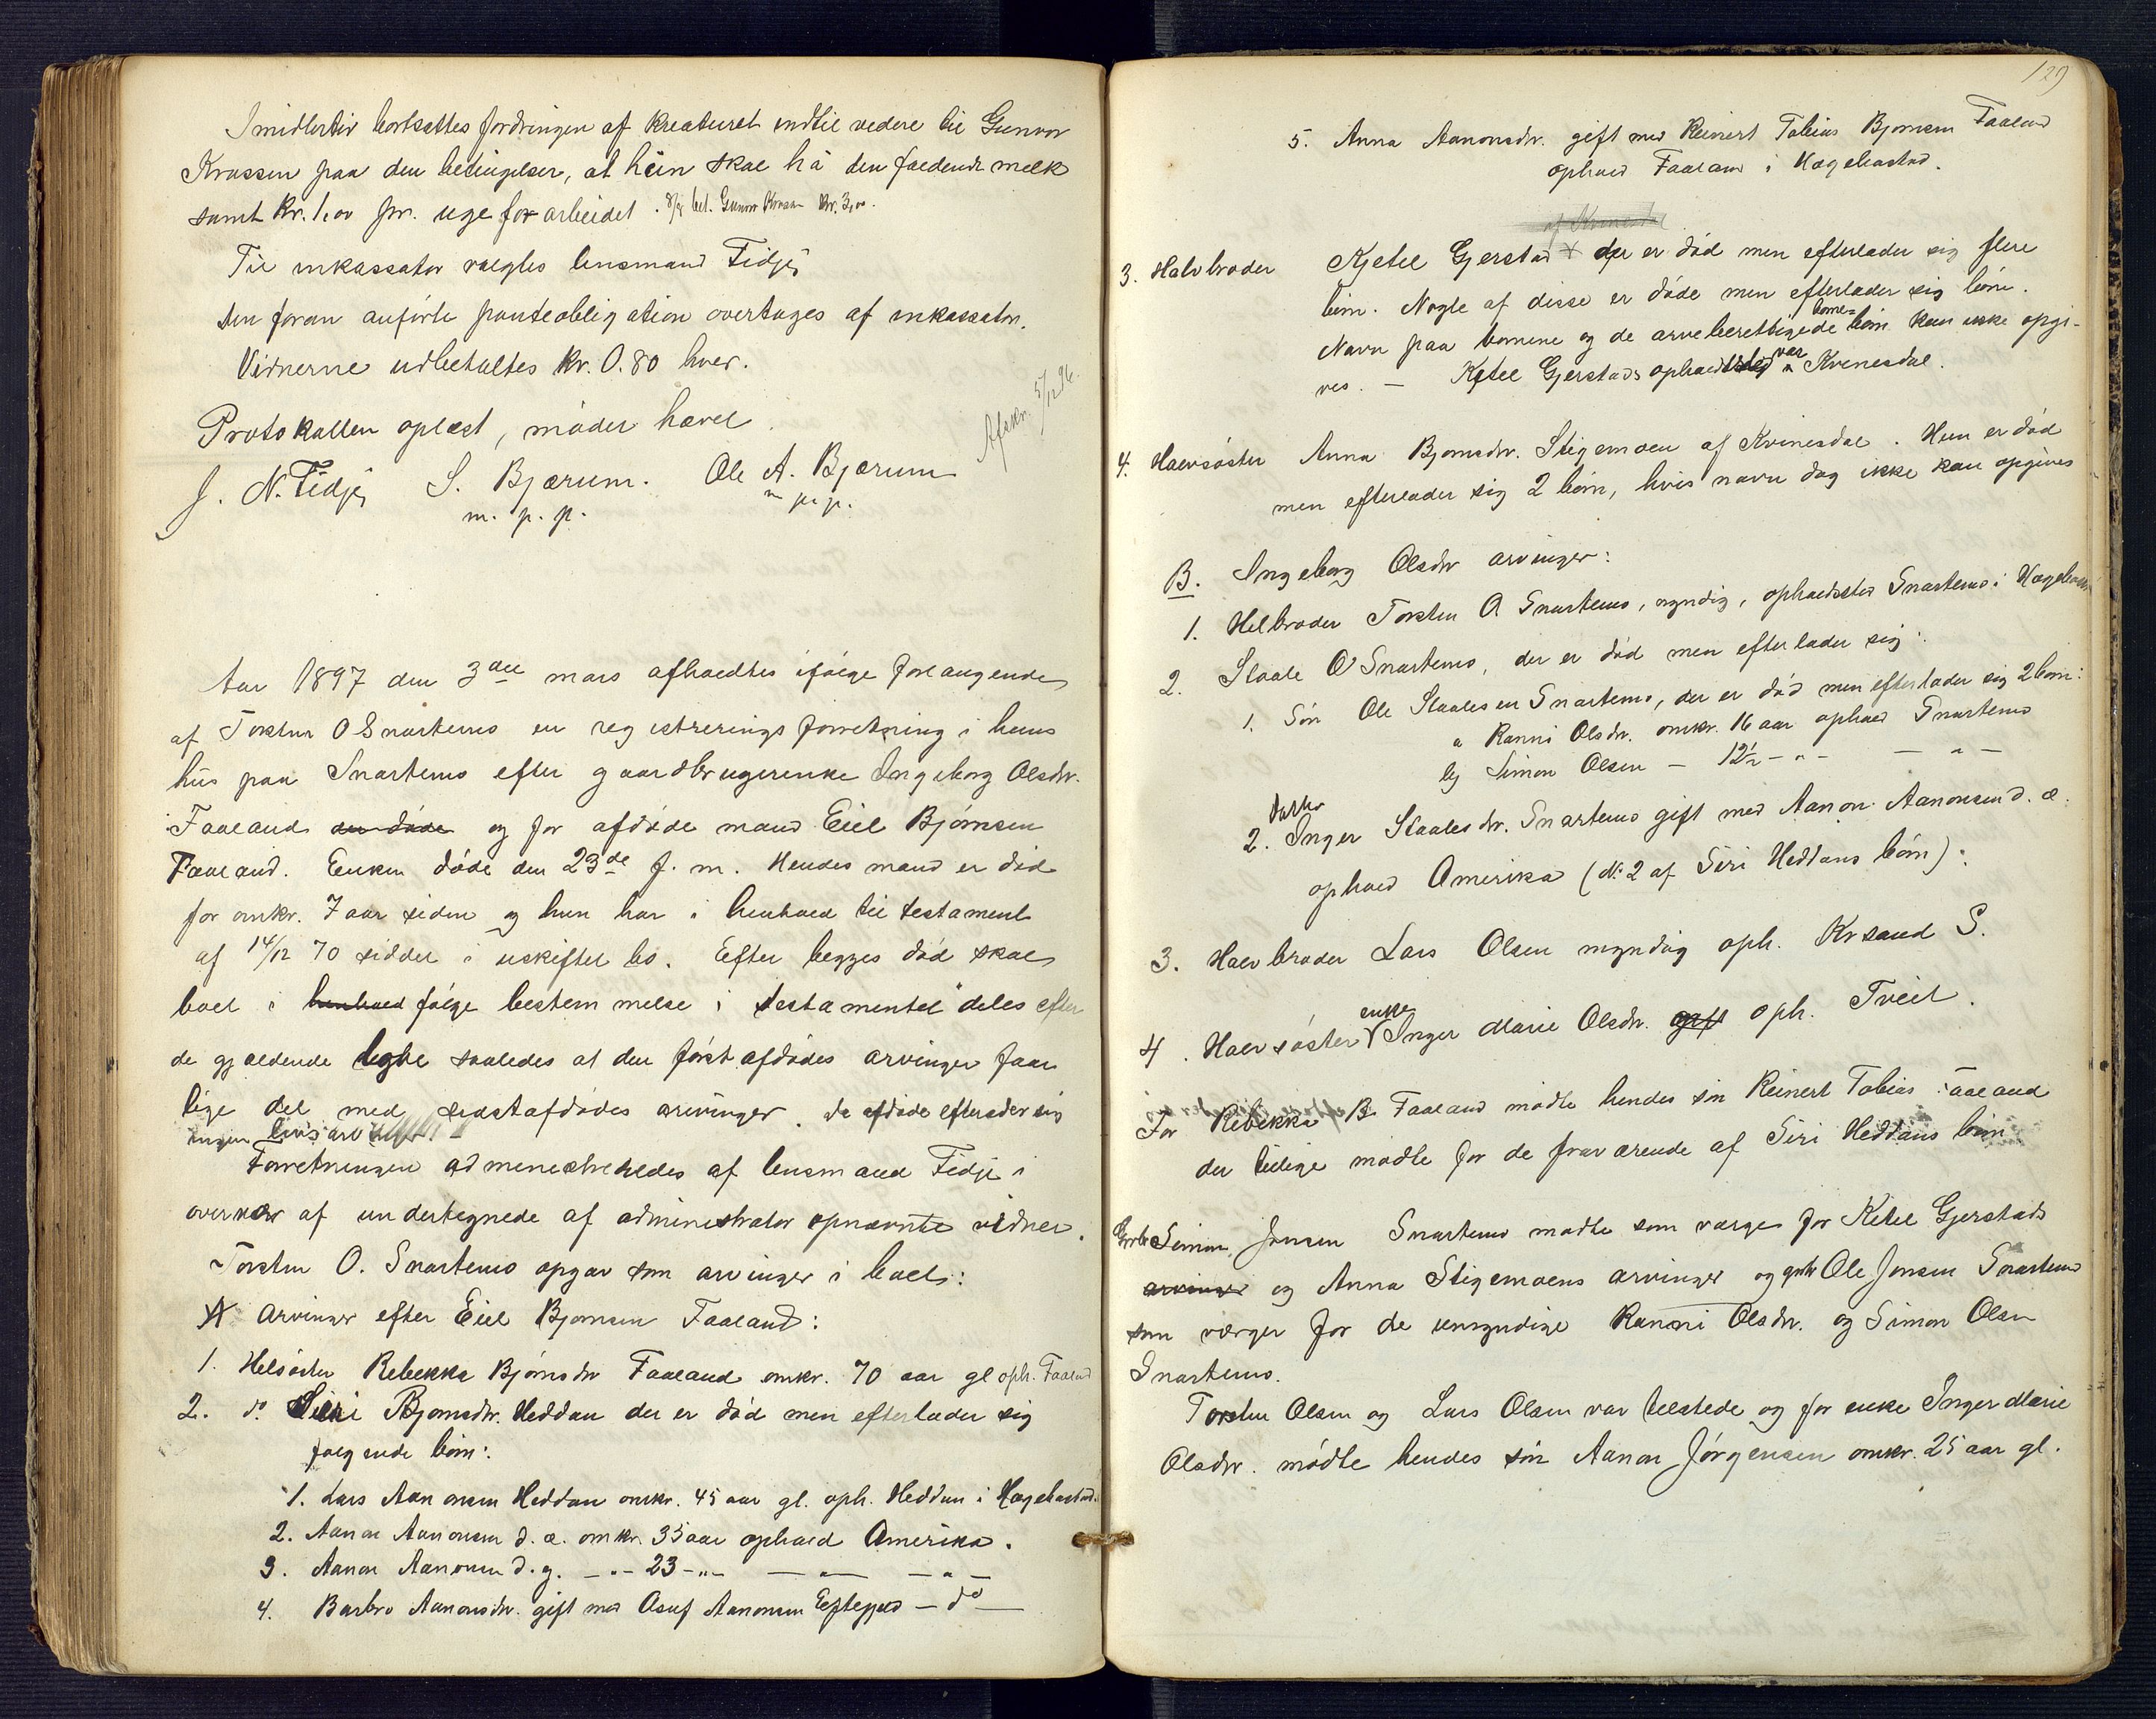 Imidlertid bortsettes fordringen af kreaturet indtil videre til Gunvor
Krossen paa den betingelser, at hun skal ha den faldende melk
samt kr. 1,00 pr. uge for arbeidet. bet. Gunvor Krossen kr. 3,00.
Til inkassator valgtes lensmand Fidje
Den foran anførte panteobligation overtages af inkassator.
Vidnerne udbetaltes kr. 0.80 hver.
Protokollen oplæst, møder hævet
Afskr. 5/12 96.
J. N. Fidje S. Bjærum. Ole A. Bjærum
m. p. p. m. p. p.
Aar 1897 den 3die mars afholdtes ifølge forlangende
af Torsten O Snartemo en registreringsforretning i hans
hus paa Snartemo efter gaardbrugerenke Ingeborg Olsdtr.
Faaland den døde og for afdøde mand Eiel Bjørnsen
Faaland. Enken døde den 23de f. m. Hendes mand er død
for omkr. 7 aar siden og hun har i henhold til testament
af 14/12 70 siddet i uskiftet bo. Efter begges død skal
boet i henhold følge bestemmelse i testamentet "deles efter
de gjældende love saaledes at den først afdødes arvinger faar
lige del med sidstafdødes arvinger. De afdøde efterlader sig
ingen livsarv
Forretningen administreredes af lensmand Fidje i
overvær af undertegnede af administrator opnævnte vidner.
Torsten O. Snartemo opgav som arvinger i boet:
A Arvinger efter Eiel Bjørnsen Faaland:
1. Helsøster Rebekka Bjørnsdtr Faaland omkr. 70 aar gl oph. Faaland
2. do. Siri Bjørnsdtr. Heddan der er død men efterlader sig
følgende børn:
1. Lars Aanonsen Heddan omkr. 45 aar gl. oph. Heddan i Hægebostad.
2. Aanon Aanonsen d. æ. omkr. 35 aar ophold Amerika.
3. Aanon Aanonsen d. y. - " - 23 - " - — " — — " —
4. Barbro Aanonsdtr. gift med Osuf Aanonsen — do —
129
5. Anna Aanonsdtr. gift med Reinert Tobias Bjørnsen Faaland
ophold Faaland i Hægebostad.
af Kvinesdal
3. Halvbroder Kjetel Gjerstad der er død men efterlader sig flere
børn. Nogle af disse er døde men efterlader sig børn.
Navn paa børnene og de arveberettigede børne-børn kan ikke opgi-
ves. — Ketel Gjerstads opholdssted var Kvinesdal.
4. Halvsøster Anna Bjørnsdtr. Stigemoen af Kvinesdal. Hun er død
men efterlader sig 2 børn, hvis navn dog ikke kan opgives
B. Ingeborg Olsdtr arvinger:
1. Helbroder Torsten O Snartemo, myndig, opholdssted Snartemo i Hægebostad
2. Staale O Snartemo, der er død men efterlader sig:
1. Søn Ole Staalesen Snartemo, der er død men efterlader sig 2 børn:
a Ranni Olsdtr. omkr. 16 aar ophold Snartemo
b Simon Olsen — 12½ - " - — " —
2. Datter Inger Staalesdtr. Snartemo gift med Aanon Aanonsen d. æ.
ophold Amerika (No. 2 af Siri Heddans børn):
3. Halvbroder Lars Olsen myndig oph. Krsand S.
4. Halvsøster enke Inger Marie Olsdtr. gift oph. Tveit.
For Rebekka B Faaland mødte hendes søn Reinert Tobias Faaland
der tidlige mødte for de fraværende af Siri Heddans børn
Grbr Simon Jensen Snartemo mødte som værge for Ketel Gjerstads
arvinger og Anna Stigemoens arvinger og grbr Ole Jensen Snartemo
som værger for de umyndige Ranni Olsdtr. og Simon Olsen
Snartemo.
Torsten Olsen og Lars Olsen var tilstede og for enke Inger Marie
Olsdtr. mødte hendes søn Aanon Jørgensen omkr. 25 aar gl.